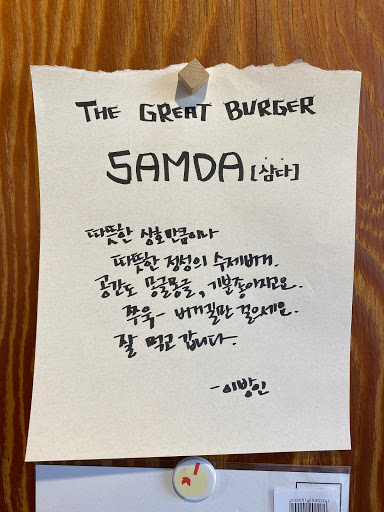 THE GREAT BURGER
SAMDA [삼다]
따뜻한 상호만큼이나
따뜻한 정성의 수제버거.
공간도 몽글몽글, 기분좋아지고요.
쭈욱- 버거길만 걸으세요.
잘 먹고 갑니다.
-이방인